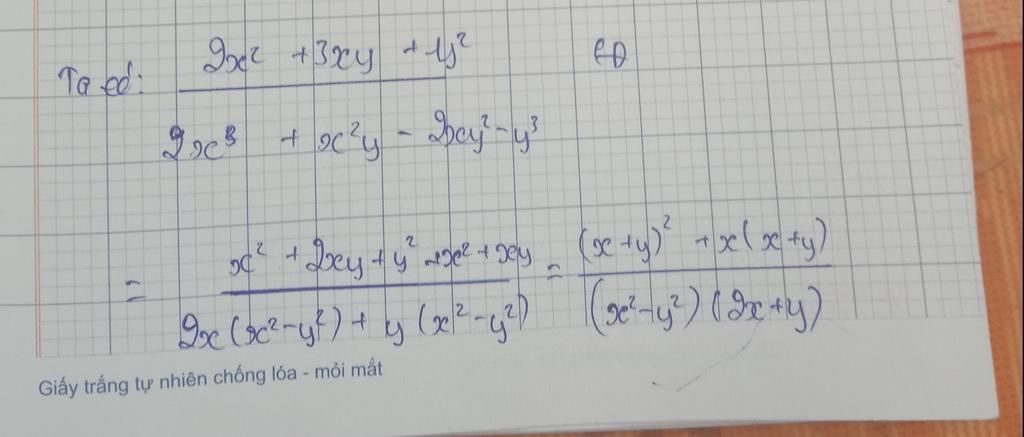 Ta có: 2x² + 3xy + y²
2x³ + x²y - 2xy² - y³
= x² + 2xy + y² + x² + xy = (x + y)² + x(x + y)
2x(x² - y²) + y(x² - y²) (x² - y²)(2x + y)
Giấy trắng tự nhiên chống lóa - mỏi mắt